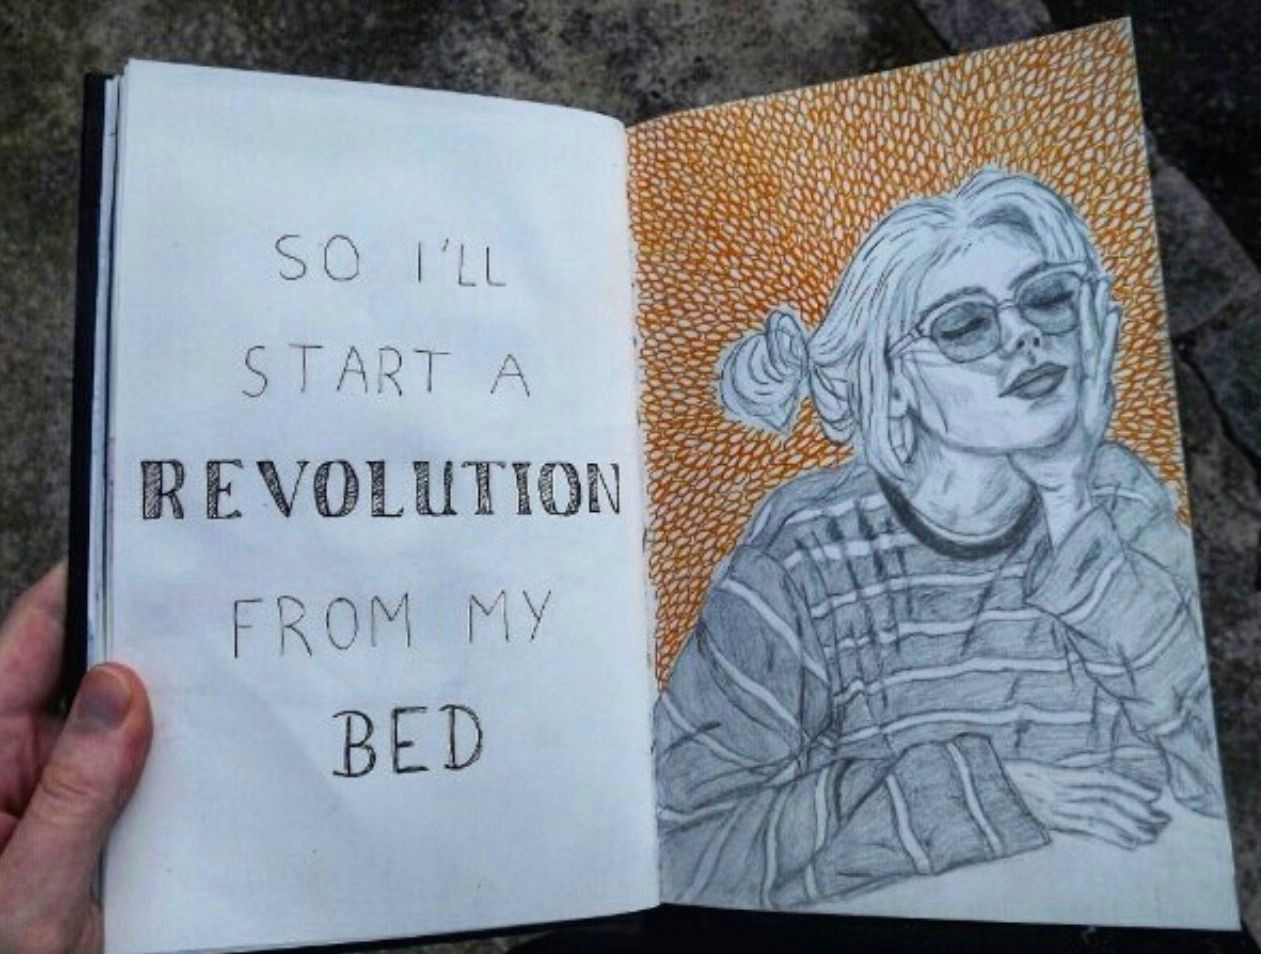 SO I'LL
START A
REVOLUTION
FROM MY
BED